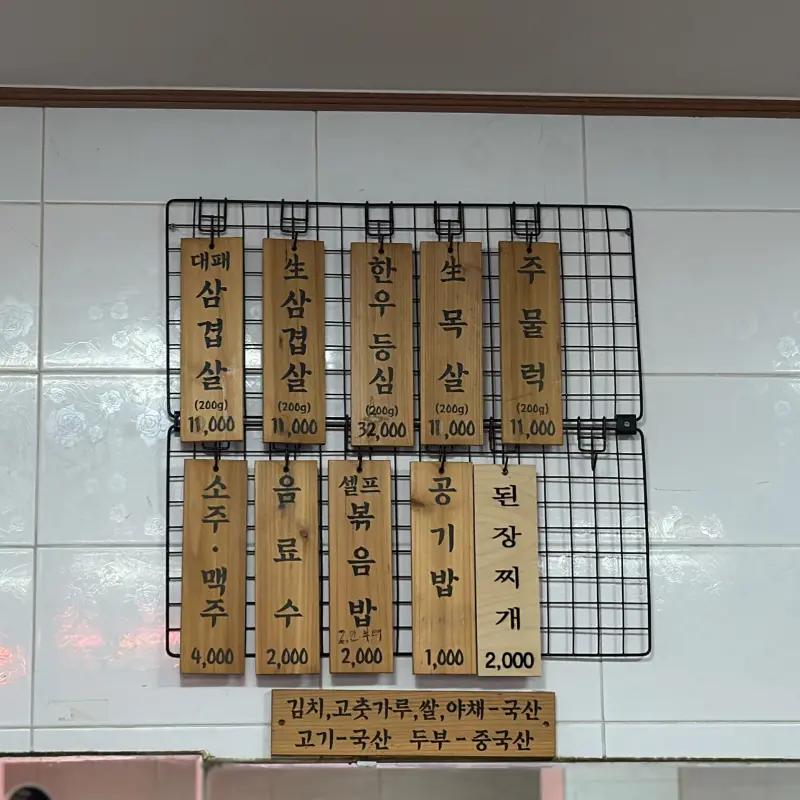 대패
삼겹살
(200g)
11,000
生삼겹살
(200g)
11,000
한우등심
(200g)
32,000
生목살
(200g)
11,000
주물럭
(200g)
11,000
소주·맥주
4,000
음료수
2,000
셀프
볶음밥
2,000
공기밥
1,000
된장찌개
2,000
김치,고춧가루,쌀,야채-국산
고기-국산 두부-중국산